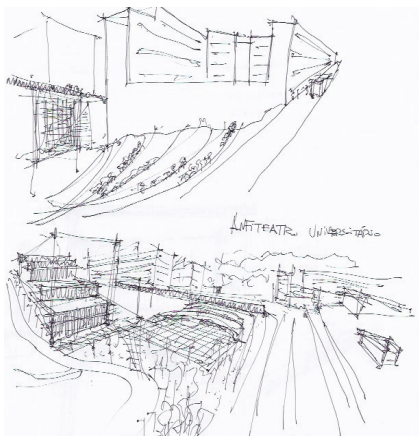 ANFITEATRO UNIVERSITÁRIO